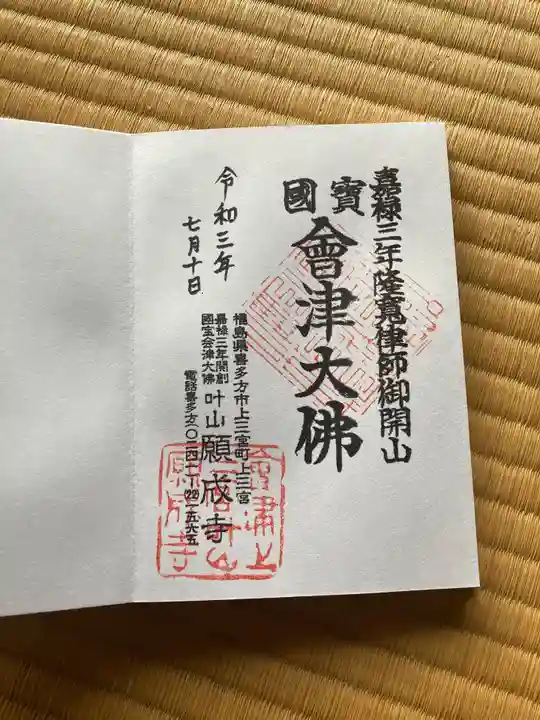 嘉禄三年隆寛律師御開山
國寳
會津大佛
福島県喜多方市上三宮町上三宮
嘉禄三年開創
國宝会津大佛
叶山願成寺
電話喜多方〇二四一-(22)一五六五
令和三年
七月十日
願成寺